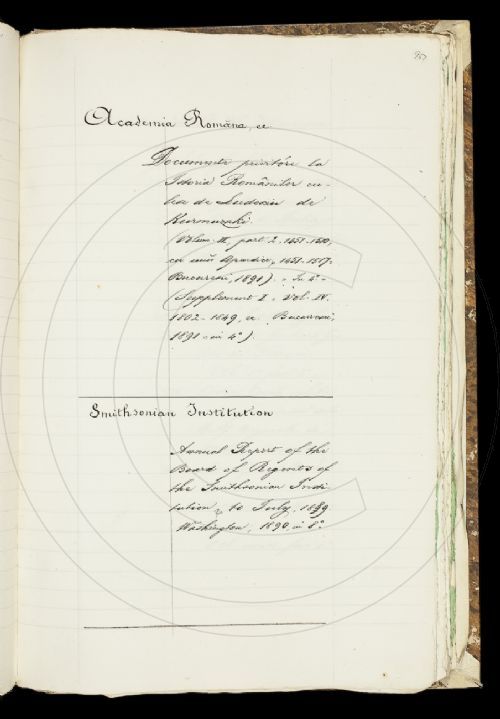 Academia Româna, ec.
Documente privitóre la
Istoria Românilor cu-
lese de Eudoxiu de
Hurmuzaki
(Volum II, part 2. 1451-1510,
cu Apendice, 1451-1517.
Bucuresci, 1891). - In 4º -
(Supplement I - Vol. IV.
1802-1849, Bucuresci,
1891 - in 4º).
Smithsonian Institution
Annual Report of the
Board of Regents of
the Smithsonian Insti
tution, to July, 1889
Washington, 1890, in 8º.